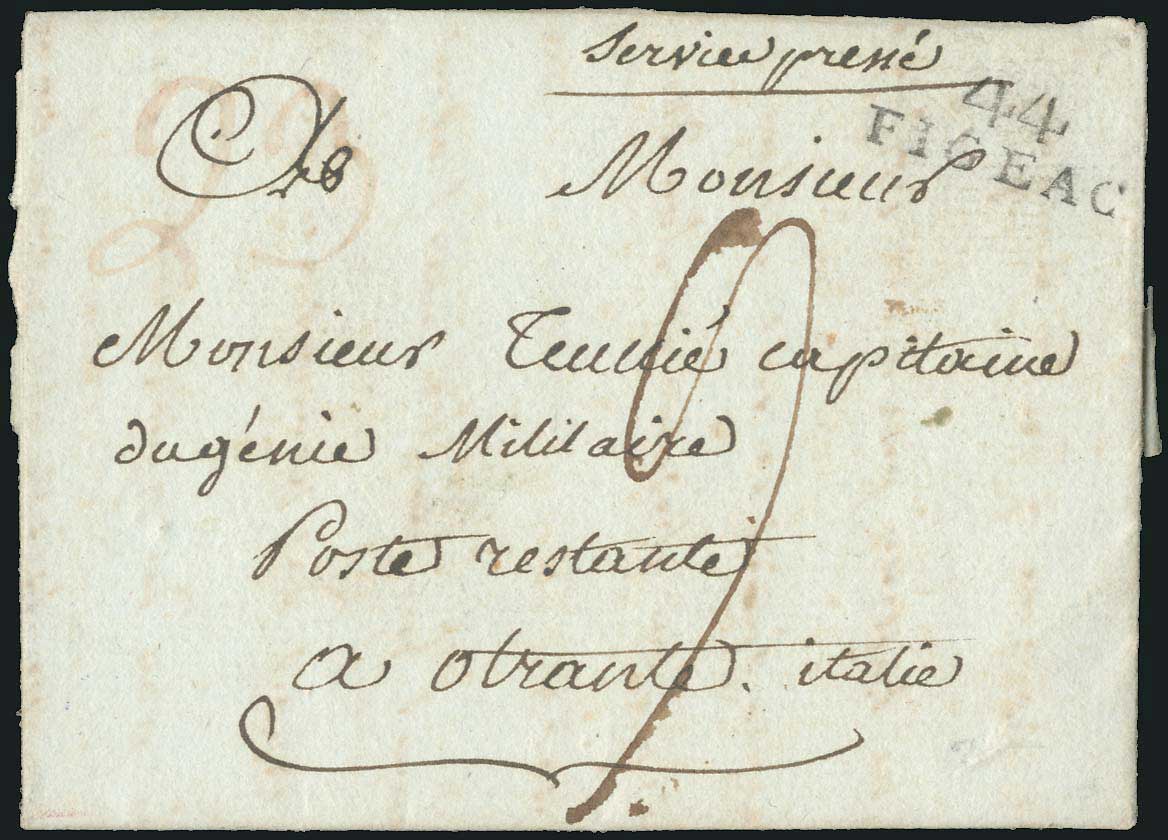 Service pressé
44
FIGEAC
Monsieur
23
Monsieur capitaine
du génie Militaire
Poste restante
a otrante. italie